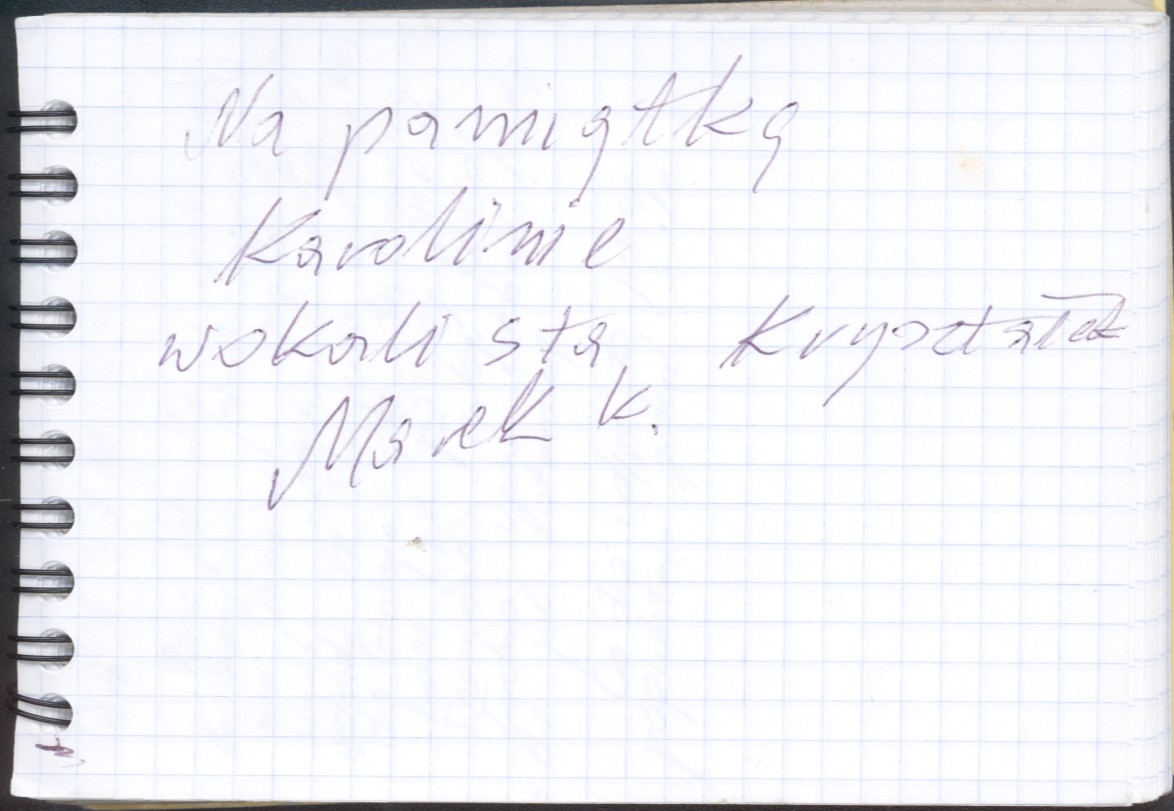 Na pamiątkę
Karolinie
wokalista Kryształek
Marek K.